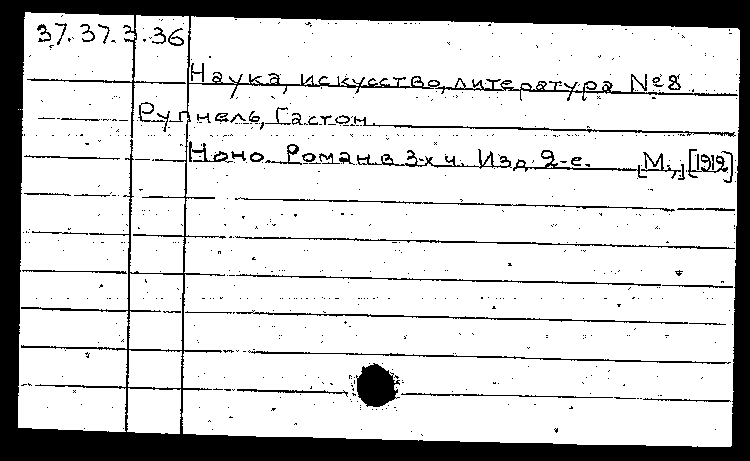 37.37.3.36
Наука, искусство, литература № 8.
Рупнель, Гастон.
Ноно. Роман в 3-х ч. Изд. 2-е. [М.,] [1912]